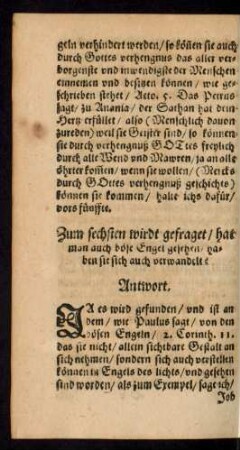 geln verhindert werden/ so köñen sie auch
durch Gottes verhengnus das aller ver-
borgenste vnd inwendigste der Menschen
einnemen vnd besitzen können/ wie ge-
schrieben stehet/ Acto. 5. Das Petrus
sagt/ zu Anania/ der Sathan hat dein
Hertz erfüllet/ also (Menschlich dauon
zureden) weil sie Geister sind/ so können
sie durch verhengnuß GOTtes freylich
durch alle Wend vnd Mawren/ ja an alle
öhrter kom̃en/ wenn sie wollen/ (Mercks
durch GOttes verhengnuß geschichts)
können sie kommen/ halte ichs dafür/
vors fünffte.
Zum sechsten wirdt gefraget/ hat
man auch böse Engel gesehen/ ha-
ben sie sich auch verwandelt?
Antwort.
JA es wird gefunden/ vnd ist an
dem/ wie Paulus sagt/ von den
bösen Engeln/ 2. Corinth. 11.
das sie nicht/ allein sichtbare Gestalt an
sich nehmen/ sondern sich auch verstellen
können in Engels des lichts/ vnd gesehen
sind worden/ als zum Exempel/ sage ich/
Job